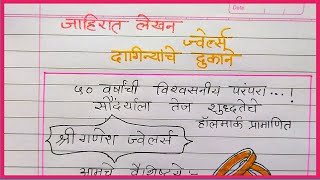 जाहिरात लेखन
ज्वेलर्स
दागिन्यांचे दुकान
५० वर्षांची विश्वसनीय परंपरा...!
सौंदर्याला तेज शुद्धतेचे
हॉलमार्क प्रमाणित
श्री गणेश ज्वेलर्स
आमचे वैशिष्ट्ये :-